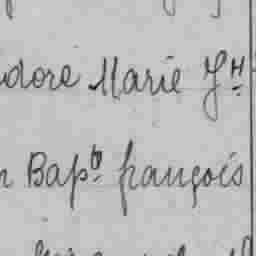 dore Marie Jh
n Bapte françois